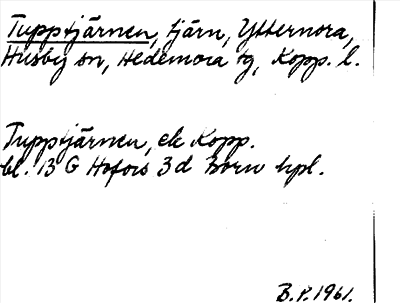 Tupptjärnen, tjärn, Ytternora,
Husby sn, Hedemora tg, Kopp. l.
Tupptjärnen, ek Kopp.
bl. 13 G Hofors 3d Born hpl.
B.P. 1961.